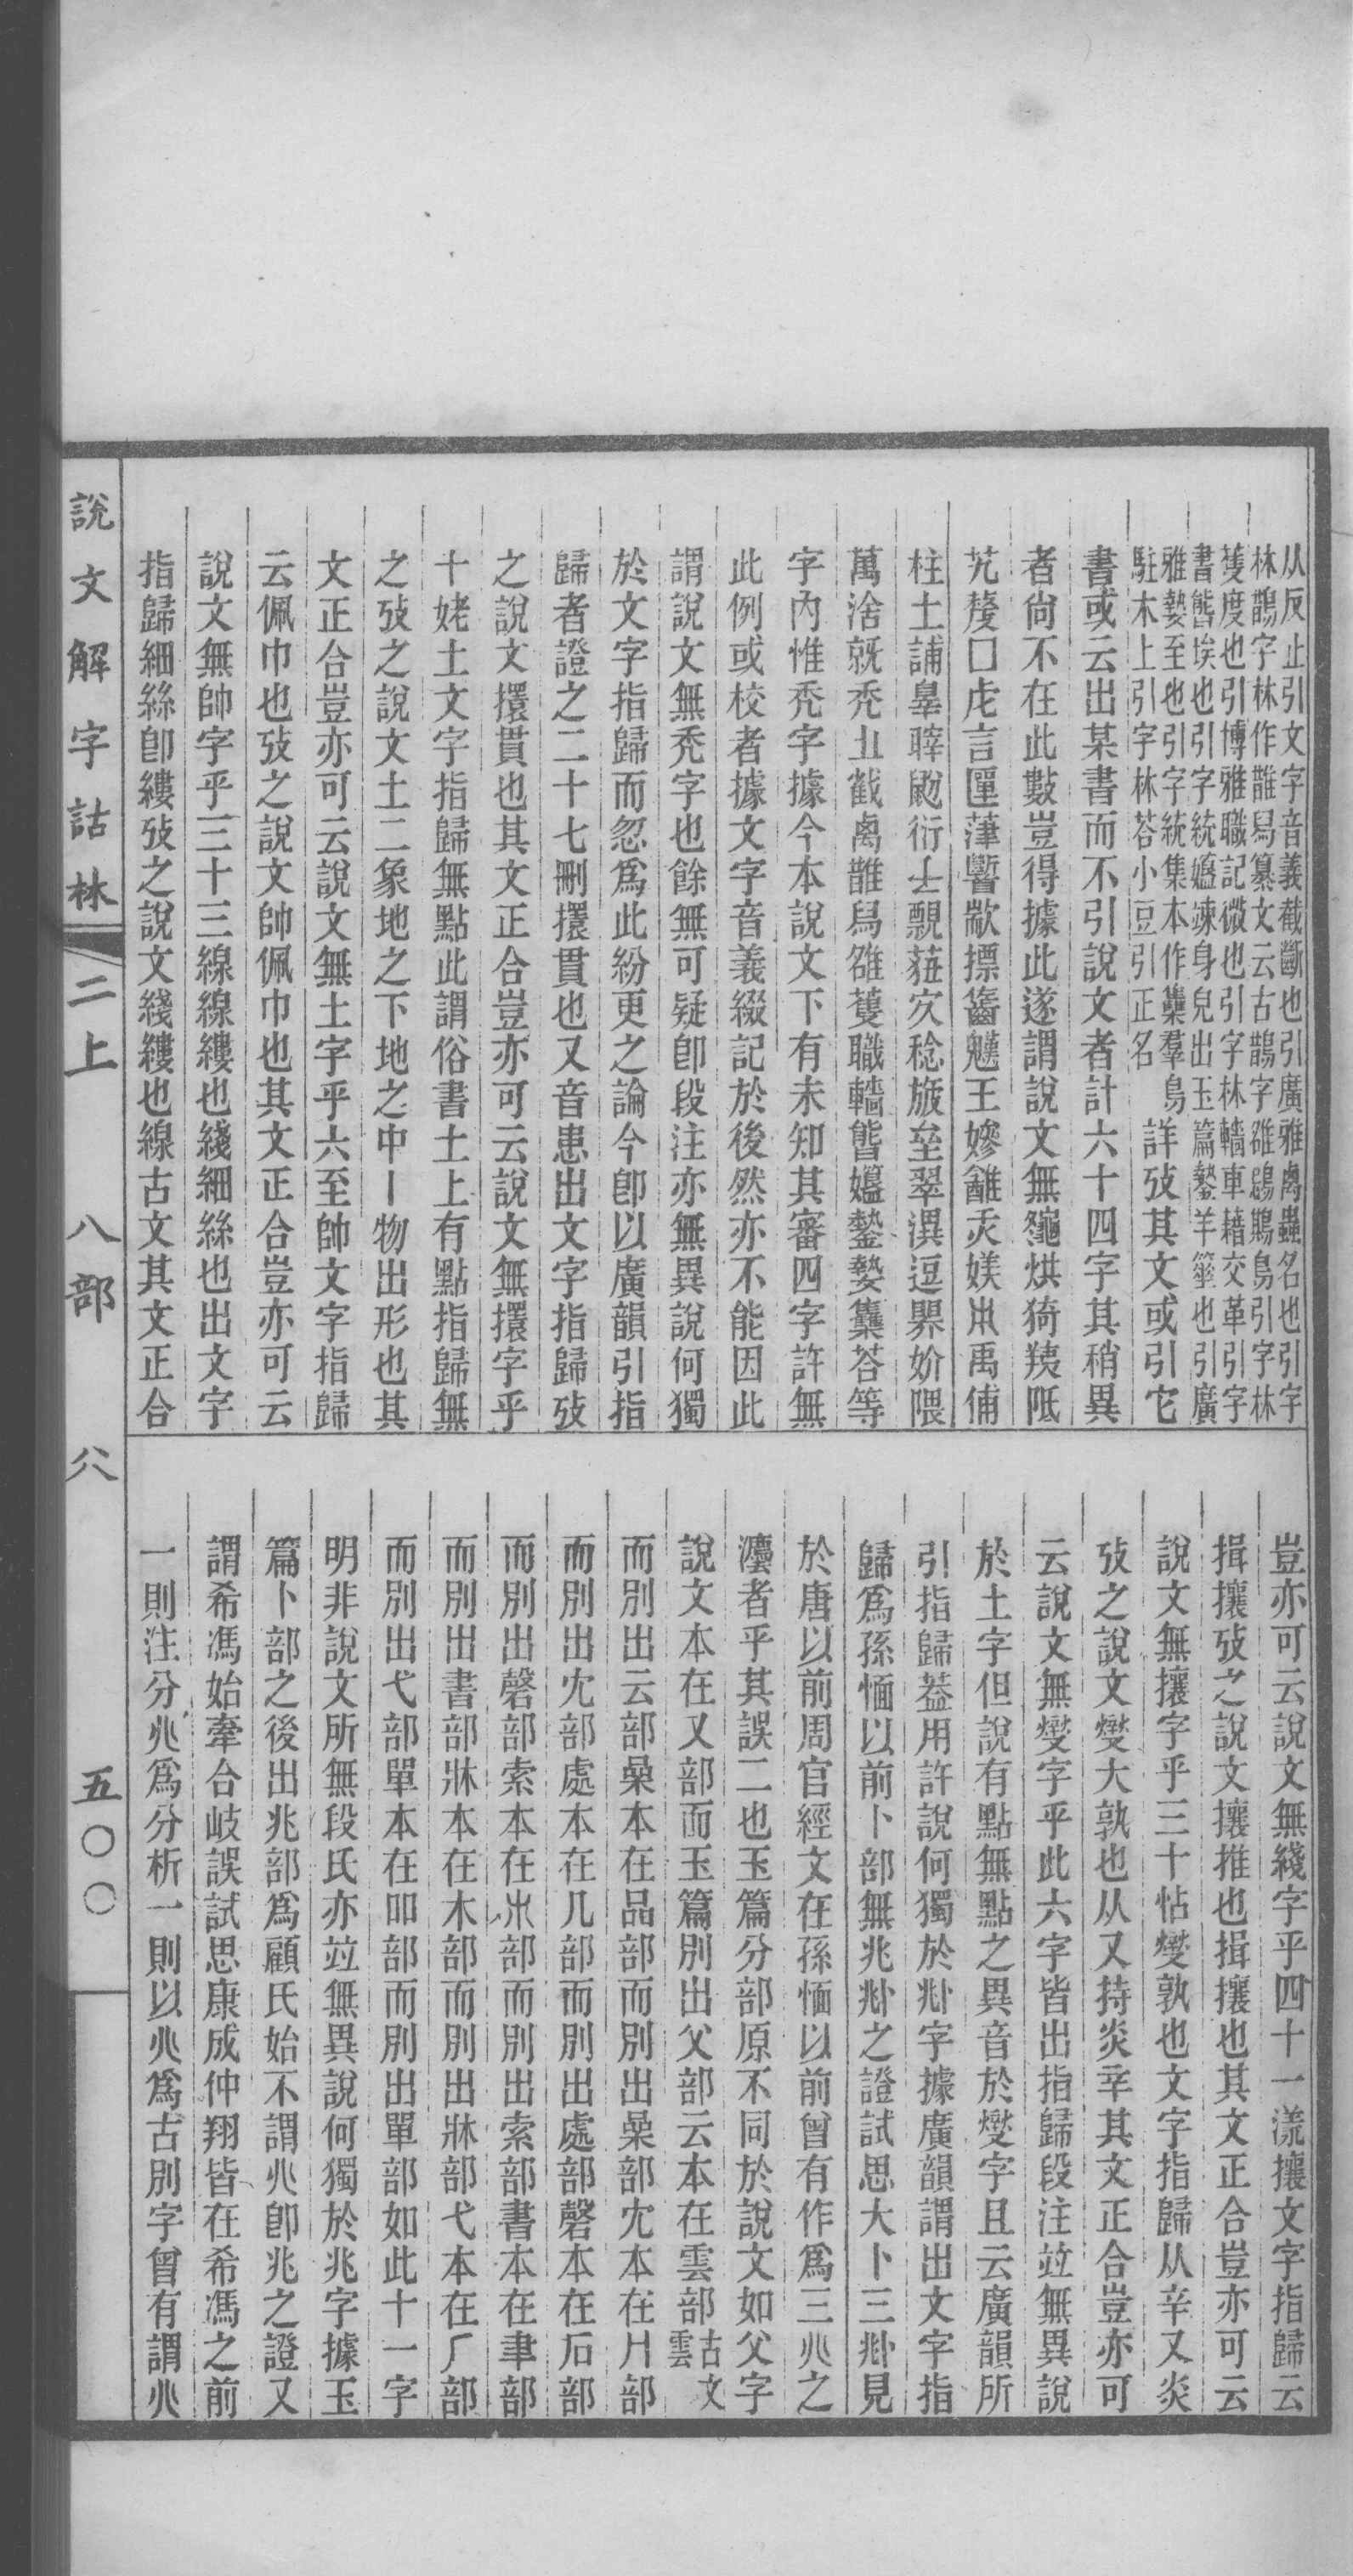 从反止引文字音義截斷也引廣雅禼蟲名也引字
林鵲字林作䧿舄纂文云古鵲字雒鵋鶀鳥引字林
蒦度也引博雅職記微也引字林轖車藉交革引字
書㟂埃也引字統㜲竦身皃出玉篇䥐羊箠也引廣
雅㙯至也引字統集本作雧羣鳥
駐木上引字林荅小豆引正名
詳攷其文或引它
書或云出某書而不引說文者計六十四字其稍異
者尙不在此數豈得據此遂謂說文無䶱烘猗羠阺
艽㸚囗虍言匰葏謦歊摽齹魕王嫪雝灻媄朮禹俌
柱土誧皐聹瓝衍士䚍葅穴稔旇坙翠潩逗畀妎隈
萬捨旣禿丠截禼䧿舄雒蒦職轖㟂㜲䥐㙯雧荅等
字內惟禿字據今本說文下有未知其審四字許無
此例或校者據文字音義綴記於後然亦不能因此
謂說文無禿字也餘無可疑卽段注亦無異說何獨
於文字指歸而忽爲此紛更之論今卽以廣韻引指
歸者證之二十七刪擐貫也又音患出文字指歸攷
之說文擐貫也其文正合豈亦可云說文無擐字乎
十姥土文字指歸無點此謂俗書土上有點指歸無
之攷之說文土二象地之下地之中丨物出形也其
文正合豈亦可云說文無土字乎六至帥文字指歸
云佩巾也攷之說文帥佩巾也其文正合豈亦可云
說文無帥字乎三十三線線縷也綫細絲也出文字
指歸細絲卽縷攷之說文綫縷也線古文其文正合
豈亦可云說文無綫字乎四十一漾攘文字指歸云
揖攘攷之說文攘推也揖攘也其文正合豈亦可云
說文無攘字乎三十怗燮孰也文字指歸从辛又炎
攷之說文燮大孰也从又持炎辛其文正合豈亦可
云說文無燮字乎此六字皆出指歸段注竝無異說
於土字但說有點無點之異音於燮字且云廣韻所
引指歸葢用許說何獨於𠧞字據廣韻謂出文字指
歸爲孫愐以前卜部無兆𠧞之證試思大卜三𠧞見
於唐以前周官經文在孫愐以前曾有作爲三㕣之
灋者乎其誤二也玉篇分部原不同於說文如父字
說文本在又部而玉篇別出父部云本在雲部古文雲
而別出云部喿本在品部而別出喿部冘本在冂部
而別出冘部處本在几部而別出處部磬本在石部
而別出磬部索本在𣎵部而別出索部書本在聿部
而別出書部牀本在木部而別出牀部弋本在厂部
而別出弋部單本在吅部而別出單部如此十一字
明非說文所無段氏亦竝無異說何獨於兆字據玉
篇卜部之後出兆部爲顧氏始不謂㕣卽兆之證又
謂希馮始牽合岐誤試思康成仲翔皆在希馮之前
一則注分㕣爲分析一則以㕣爲古別字曾有謂㕣
說文解字詁林 二上 八部 㕣 五〇〇